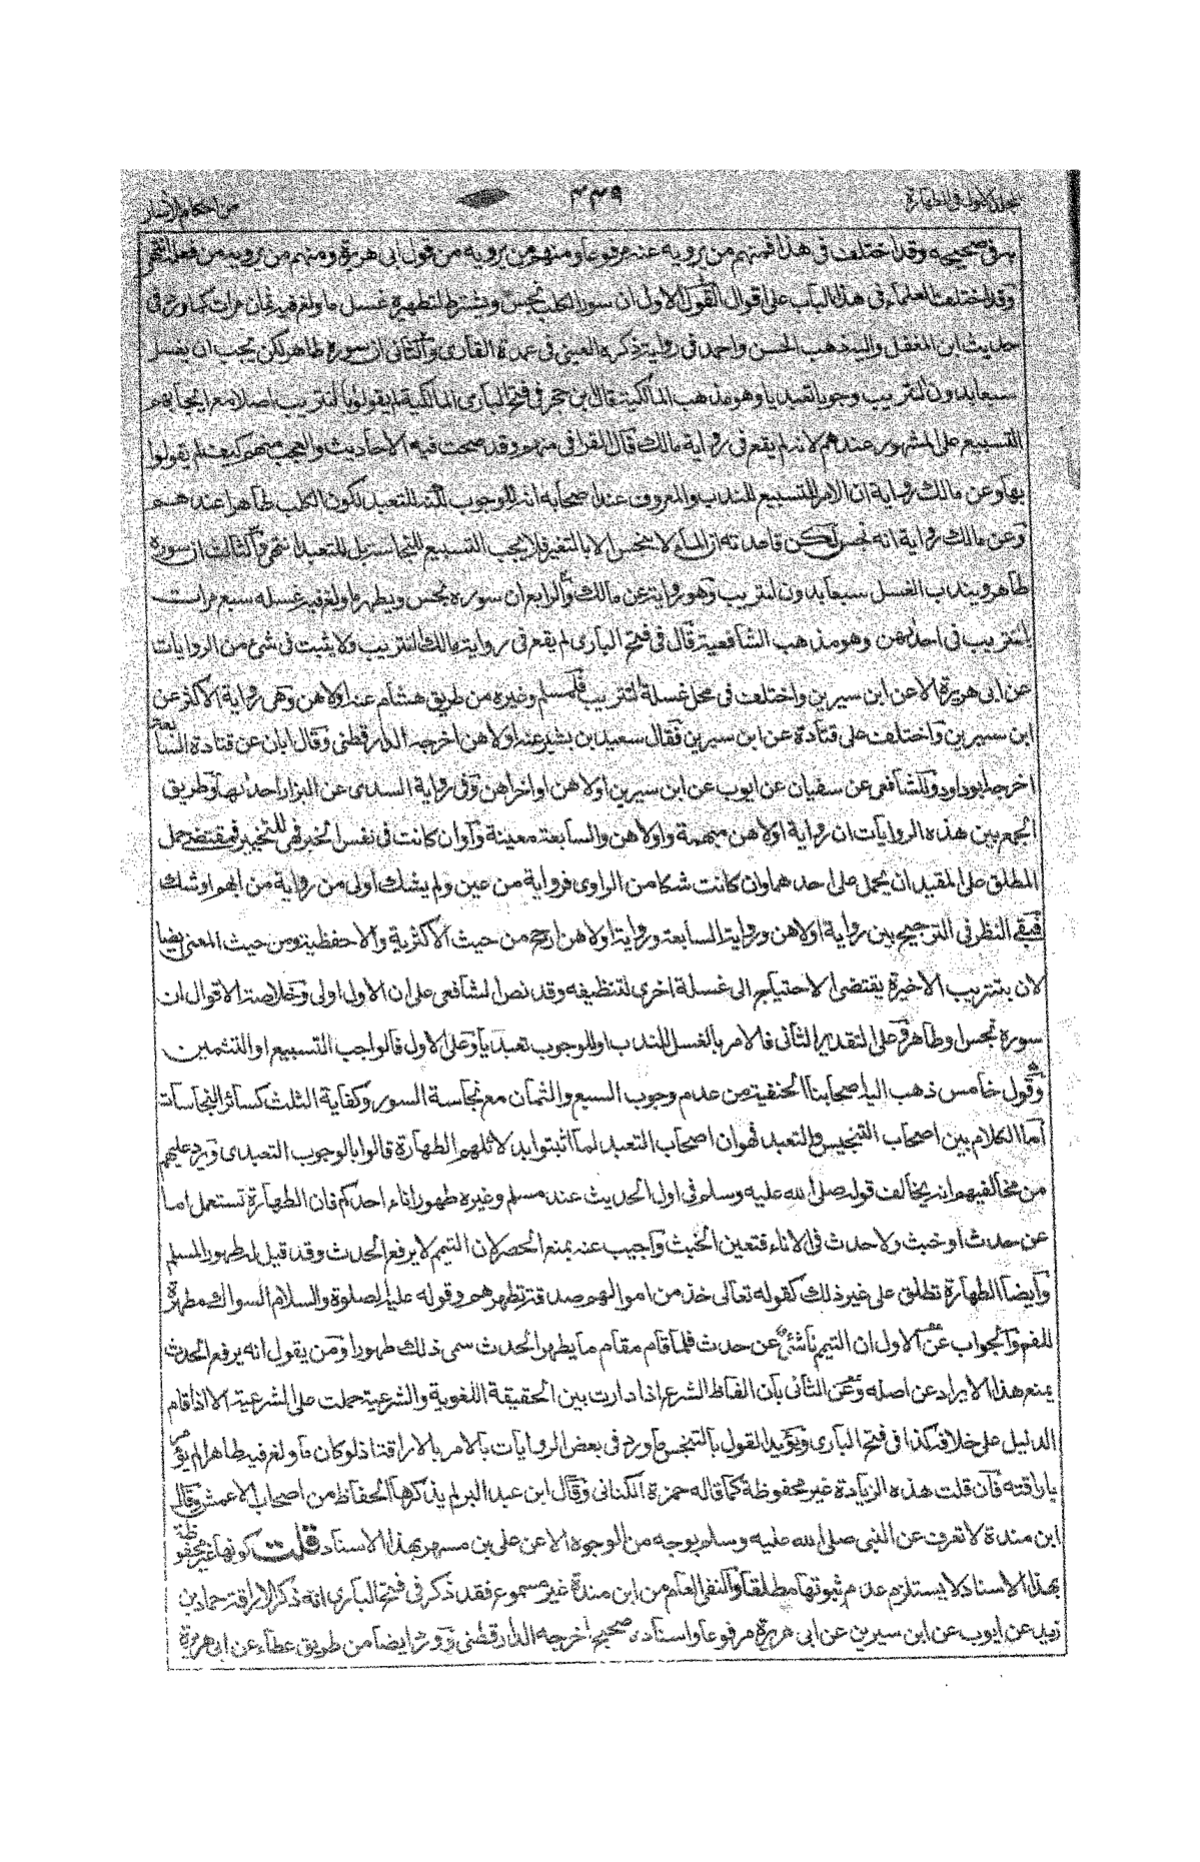 المجلد الاول فى الطهارة ٤٣٩ من احكام الآسار
صحيحه وقد اختلف فى هذا فمنهم من يرويه عنه مرفوعا ومنهم من يرويه من قول ابى هريرة ومنهم من يرويه من فعله انتهى
وقد اختلف العلماء فى هذا الباب على اقوال القول الاول ان سور الكلب نجس ويشترط لتطهيره غسل ما ولغ فيه ثمان مرات كما ورد فى
حديث ابن المغفل واليه ذهب الحسن واحمد فى رواية ذكره العينى فى عمدة القارى والثانى ان سوره طاهر لكن يجب ان يغسل
سبعا بدون التتريب وجوبا تعبديا وهو مذهب المالكية قال ابن حجر فى فتح البارى المالكية لم يقولوا بالتتريب اصلا مع ايجابهم
التسبيع على المشهور عندهم لانه لم يقع فى رواية مالك قال القرافى منهم وقد صحت فيه الاحاديث والعجب منهم كيف لم يقولوا
بها وعن مالك رواية ان الامر بالتسبيع للندب والمعروف عند اصحابه انه للوجوب لكنه للتعبد لكون الكلب طاهرا عندهم
وعن مالك رواية انه نجس لكن قاعدته ان الماء لا ينجس الا بالتغير فلا يجب التسبيع للنجاسة بل للتعبد انتهى والثالث ان سوره
طاهر ويندب الغسل سبعا بدون التتريب وهو رواية عن مالك والرابع ان سوره نجس ويطهر ما ولغ فيه غسله سبع مرات
بتتريب فى احداهن وهو مذهب الشافعية قال فى فتح البارى لم يقع فى رواية مالك التتريب ولا يثبت فى شئ من الروايات
عن ابى هريرة الا عن ابن سيرين واختلف فى محل غسلة التتريب فلمسلم وغيره من طريق هشام عنه اولاهن وهى رواية الاكثر عن
ابن سيرين واختلف على قتادة عن ابن سيرين فقال سعيد بن بشير عنه اولاهن اخرجه الدارقطنى وقال ابان عن قتادة السابعة
اخرجه ابو داود وللشافعى عن سفيان عن ايوب عن ابن سيرين اولاهن او اخراهن وفى رواية السدى عن البزار احداهن وطريق
الجمع بين هذه الروايات ان رواية اولاهن مبهمة واولاهن والسابعة معينة وآو ان كانت فى نفس الخبر فهى للتخيير فمقتضى حمل
المطلق على المقيد ان يحمل على احدهما وان كانت شكا من الراوى فرواية من عين ولم يشك اولى من رواية من ابهم او شك
فبقى النظر فى الترجيح بين رواية اولاهن ورواية السابعة ورواية اولاهن ارجح من حيث الاكثرية والاحفظية ومن حيث المعنى ايضا
لان بتتريب الاخيرة يقتضى الاحتياج الى غسلة اخرى لتنظيفه وقد نص الشافعى على ان الاول اولى وخلاصة الاقوال ان
سوره نجس او طاهر وعلى التقدير الثانى فالامر بالغسل للندب او للوجوب تعبديا وعلى الاول فالواجب التسبيع او التثمين
وقول خامس ذهب اليه اصحابنا الحنفية من عدم وجوب السبع والثمان مع نجاسة السور وكفاية الثلث كسائر النجاسات
آما الكلام بين اصحاب التنجيس والتعبد فهو ان اصحاب التعبد لما اثبتوا بدلائلهم الطهارة قالوا بالوجوب التعبدى ويرد عليهم
من مخالفيهم انه يخالف قوله صلى الله عليه وسلم فى اول الحديث عند مسلم وغيره طهور اناء احدكم فان الطهارة تستعمل اما
عن حدث او خبث ولا حدث فى الاناء فتعين الخبث واجيب عنه بمنع الحصر لان التيمم لا يرفع الحدث وقد قيل له طهور المسلم
وآيضا الطهارة تطلق على غير ذلك كقوله تعالى خذ من اموالهم صدقة تطهرهم وقوله عليه الصلوة والسلام السواك مطهرة
للفم والجواب عن الاول ان التيمم ناشئ عن حدث فلما قام مقام ما يطهر الحدث سمى ذلك طهورا ومن يقول انه يرفع الحدث
يمنع هذا الايراد عن اصله وعن الثانى بآن الفاظ الشرع اذا دارت بين الحقيقة اللغوية والشرعية حملت على الشرعية الا اذا قام
الدليل على خلافه كذا فى فتح البارى ويؤيد القول بالتنجس ما ورد فى بعض الروايات بالامر بالاراقة اذ لو كان ما ولغ فيه طاهرا لم يؤمر
باراقته فآن قلت هذه الزيادة غير محفوظة كما قاله حمزة الكنانى وقال ابن عبد البر لم يذكرها الحفاظ من اصحاب الاعمش وقال
ابن مندة لا تعرف عن النبى صلى الله عليه وسلم بوجه من الوجوه الا عن على بن مسهر بهذا الاسناد قلت كونها غير محفوظة
بهذا الاسناد لا يستلزم عدم ثبوتها مطلقا والنفى العام من ابن مندة غير مسموع فقد ذكر فى فتح البارى انه ذكر الاراقة حماد بن
زيد عن ايوب عن ابن سيرين عن ابى هريرة مرفوعا واسناده صحيح اخرجه الدارقطنى وورد ايضا من طريق عطاء عن ابى هريرة